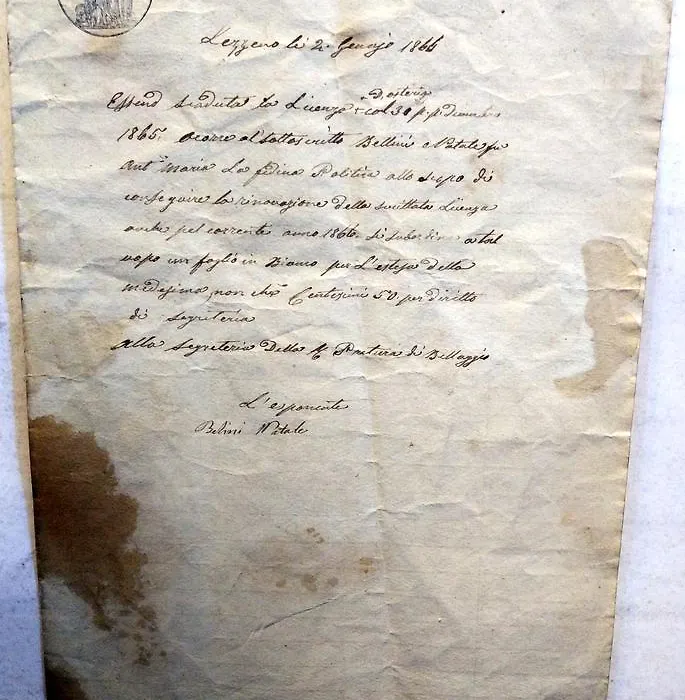 Lezzeno li 2. Gennajo 1866
Essendo scaduta la Licenza d'osteria col 30 p.p. Dicembre
1865, ocorre al sottoscritto Bellini Natale fu
Ant.º Maria La fedina Politica allo scopo di
conseguire la rinovazione della sucittata Licenza
anche pel corrente anno 1866. Si subordina a tal
uopo un foglio in Bianco per l'estesa della
medesima, non chè Centesimi 50 per diritto
di segreteria
Alla Segreteria Della R. Pretura di Bellaggio
L'esponente
Belini Natale